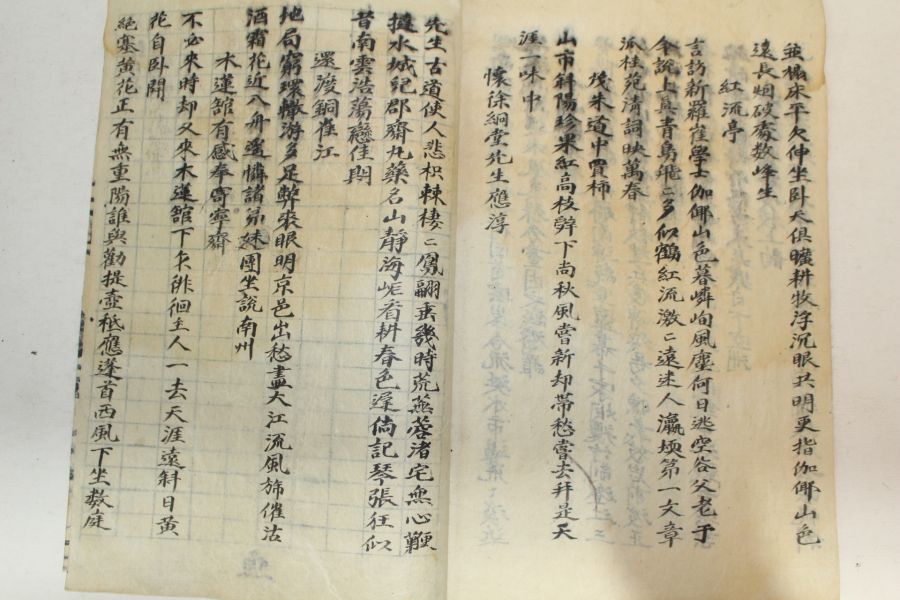 無城床平欠伸坐卧天俱曠耕牧浮沉眼共明更指伽倻山色
遠長烟破處数峰生
紅流亭
言訪新羅崔學士伽倻山色暮嶙峋風塵何日逃空谷父老于
今說上眞青鳥飛二多似鶴紅流激二遠迷人瀛堧第一文章
派桂苑清詞映萬春
茂朱道中買柿
山市斜陽珍果紅高枝下尚秋風嘗新却帶愁嘗去幷是天
涯一味中
懷徐絅堂先生應淳
先生古道使人悲枳棘棲二鳳翮垂幾時荒蕪蓉渚宅無心鞭
水城紀郡齋丸藥名山靜海岾省耕春色遲倘記琴張狂似
昔南雲浩蕩戀佳期
還渡銅雀江
地局窮環轍游多足弊來眼明京邑出愁盡大江流風旆催沽
酒霜花近入舟遙憐諸弟妹團坐說南州
木蓮舘有感奉寄寧齋
不必來時却又來木蓮舘下久徘徊主人一去天涯遠斜日黃
花自卧開
絕塞黃花正有無重陽誰與勸提壺秪應蓬首西風下坐數庭